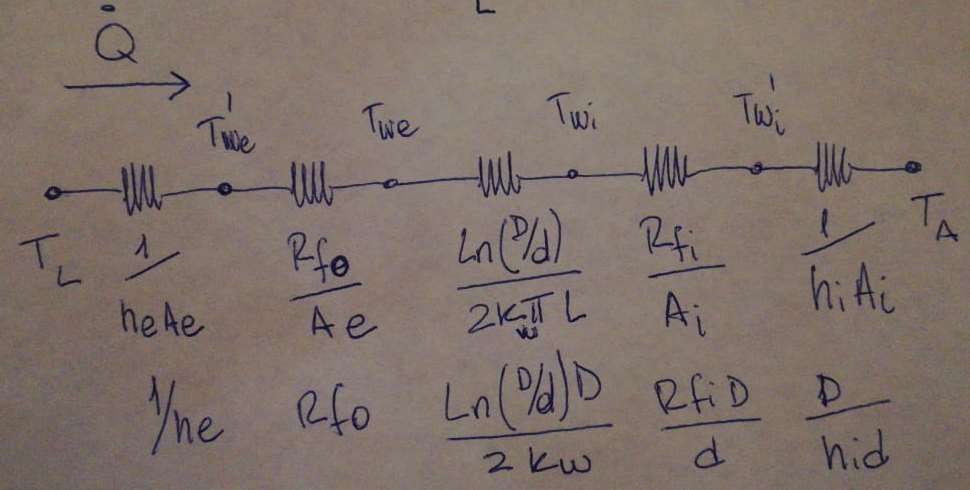 L
Q̇
T'we Twe Twi T'wi
TL 1/heAe Rfo/Ae Ln(D/d)/2kwπL Rfi/Ai 1/hiAi TA
1/he Rfo Ln(D/d)D/2kw RfiD/d D/hid